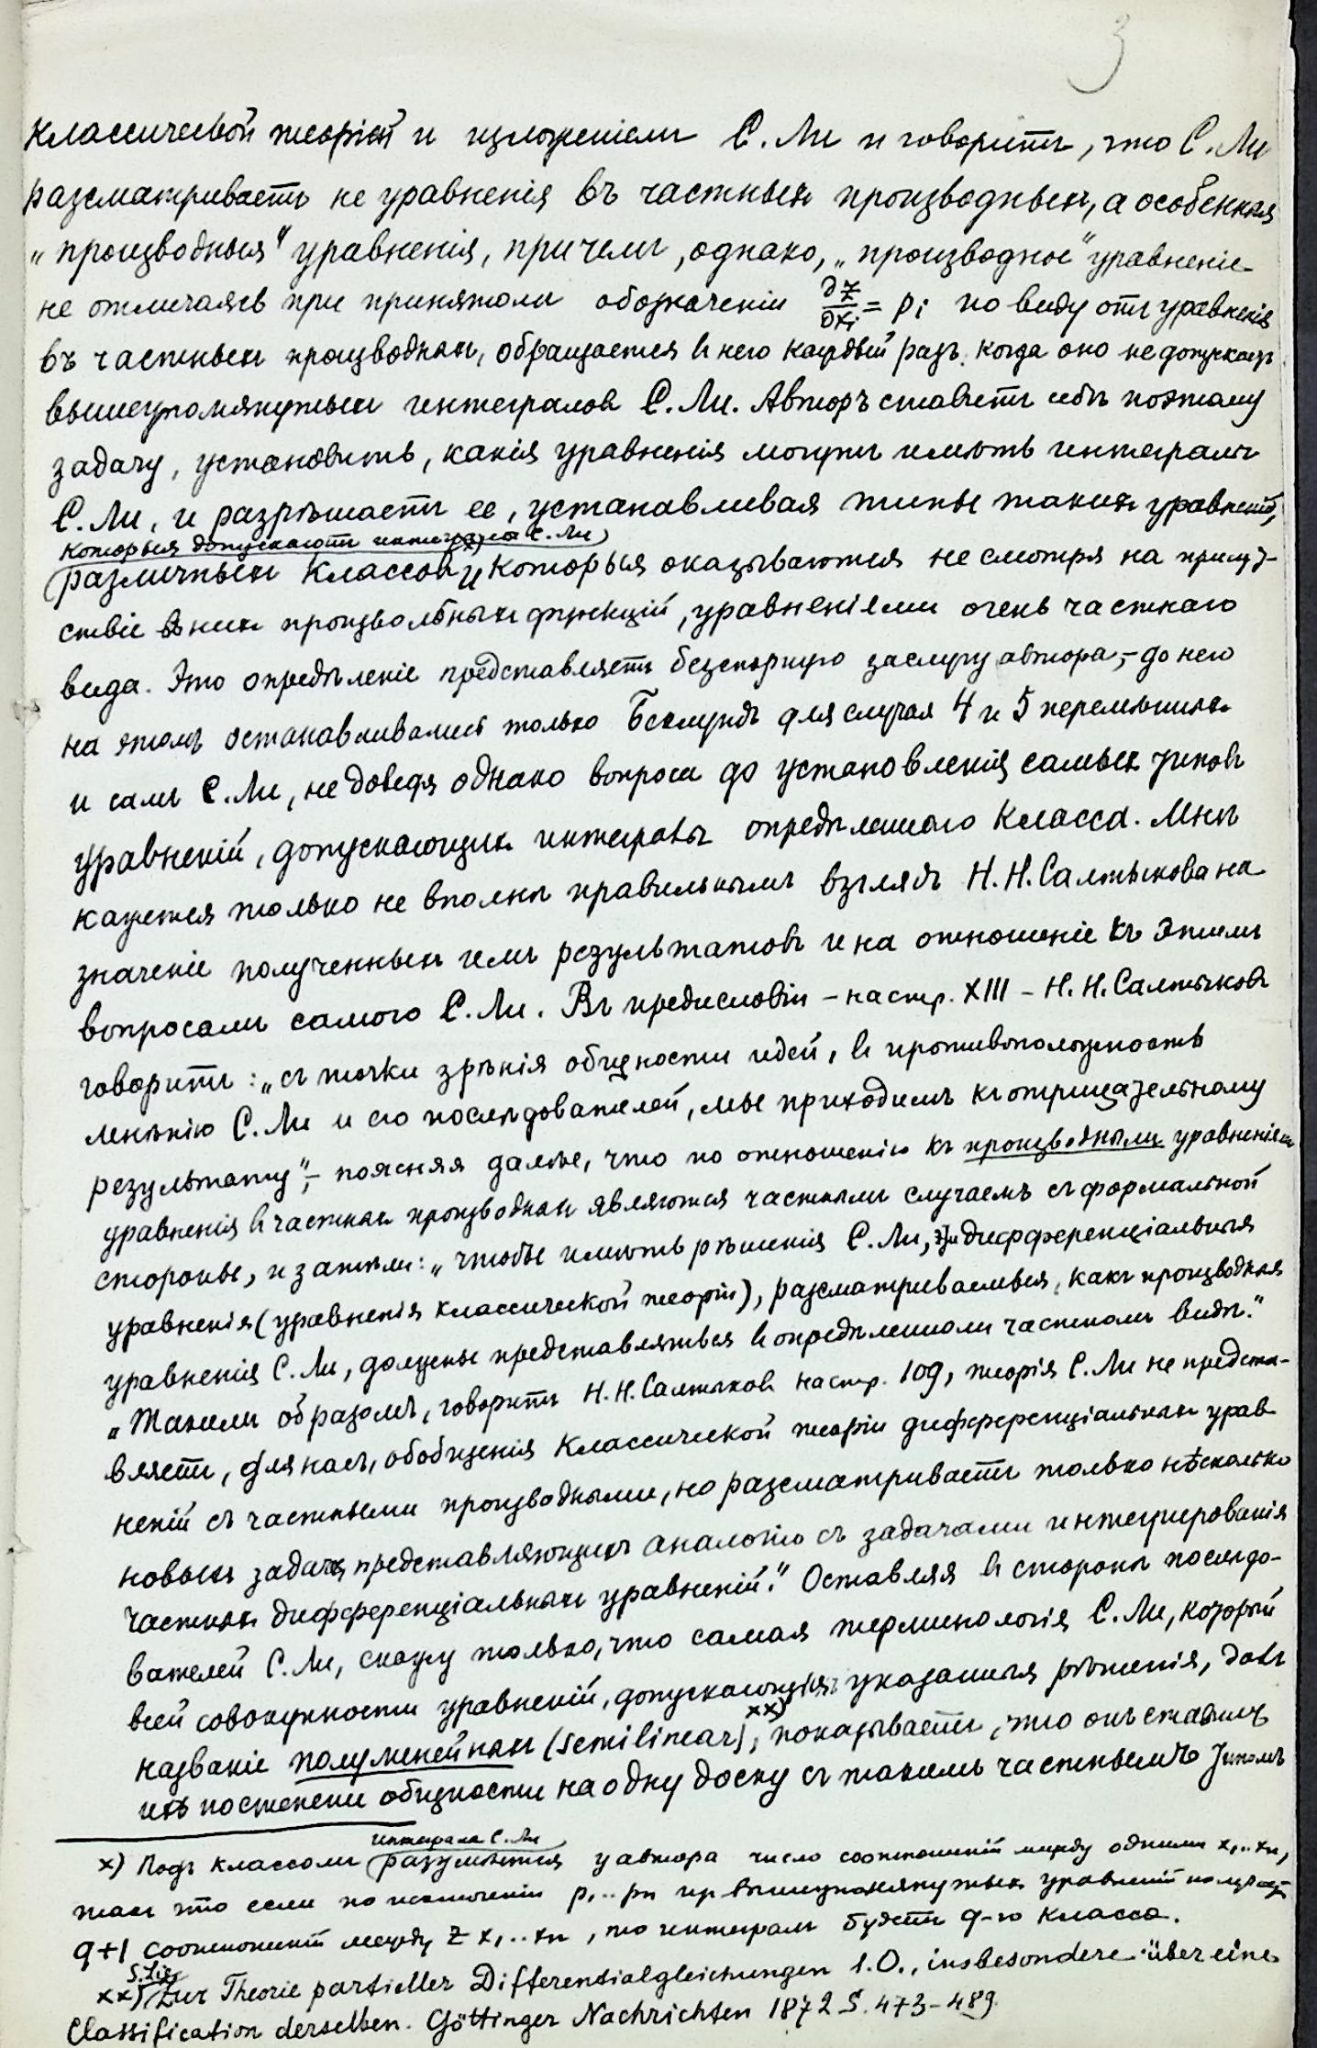 3
классической теоріей и изложеніемъ С. Ли и говоритъ, что С. Ли
разсматриваетъ не уравненія въ частныхъ производныхъ, а особенныя
„производныя" уравненія, причемъ, однако, „производное" уравненіе
не отличаясь при принятомъ обозначеніи ∂z/∂xi = pi по виду отъ уравненія
въ частныхъ производныхъ, обращается в него каждый разъ, когда оно не допускаетъ
вышеупомянутыхъ интеграловъ С. Ли. Авторъ ставитъ себѣ поэтому
задачу, установить, какія уравненія могутъ имѣть интегралы
С. Ли, и разрѣшаетъ ее, устанавливая типы такихъ уравненій,
которыя допускаютъ интегралы С. Ли
различныхъ классовъ x) и которыя оказываются не смотря на присут-
ствіе въ нихъ произвольныхъ функцій, уравненіями очень частнаго
вида. Это опредѣленіе представляетъ безспорную заслугу автора, – до него
на этомъ останавливались только Бэклундъ для случая 4 и 5 перемѣнныхъ
и самъ С. Ли, не доведя однако вопроса до установленія самыхъ типовъ
уравненій, допускающихъ интегралы опредѣленнаго класса. Мнѣ
кажется только не вполнѣ правильнымъ взглядъ Н. Н. Салтыкова на
значеніе полученныхъ имъ результатовъ и на отношеніе къ этимъ
вопросамъ самого С. Ли. Въ предисловіи – на стр. XIII – Н. Н. Салтыковъ
говоритъ: „съ точки зрѣнія общности идей, в противоположность
мнѣнію С. Ли и его послѣдователей, мы приходимъ къ отрицательному
результату", – поясняя далѣе, что по отношенію къ производнымъ уравненіямъ
уравненія в частныхъ производныхъ являются частнымъ случаемъ съ формальной
стороны, и затѣмъ: „чтобы имѣть рѣшенія С. Ли, дифференціальныя
уравненія (уравненія классической теоріи), разсматриваемыя, какъ производныя
уравненія С. Ли, должны представляться в опредѣленномъ частномъ видѣ."
„Такимъ образомъ, говоритъ Н. Н. Салтыковъ на стр. 109, теорія С. Ли не предста-
вляетъ, для насъ, обобщенія классической теоріи дифференціальныхъ урав-
неній съ частными производными, но разсматриваетъ только нѣсколько
новыхъ задачъ, представляющихъ аналогію съ задачами интегрированія
частныхъ дифференціальныхъ уравненій." Оставляя в сторонѣ послѣдо-
вателей С. Ли, скажу только, что самая терминологія С. Ли, который
всей совокупности уравненій, допускающихъ указанныя рѣшенія, далъ
названіе полулинейныхъ (semilinear) xx), показываетъ, что онъ ставилъ
ихъ по степени общности на одну доску съ такимъ частнымъ типомъ
x) Подъ классомъ интеграла С. Ли разумѣется у автора число соотношеній между одними x1..xn,
такъ что если по исключеніи p1..pn изъ вышеупомянутыхъ уравненій получаетъ
q+1 соотношеній между z x1..xn, то интегралъ будетъ q-го класса.
xx) S. Lie. Zur Theorie partieller Differentialgleichungen 1.O., insbesondere über eine
Classification derselben. Göttinger Nachrichten 1872 S. 473–489.